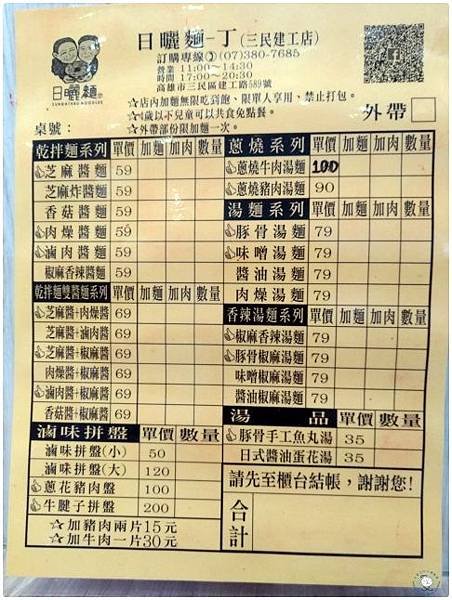 日曬麵
SUNDRYEAD NOODLES
日曬麵-丁(三民建工店)
訂購專線(07)380-7685
營業 11:00～14:30
時間 17:00～20:30
高雄市三民區建工路589號
☆店內加麵無限吃到飽、限單人享用、禁止打包。
☆1歲以下兒童可以共食免點餐。
☆外帶部份限加麵一次。
外帶
桌號：
乾拌麵系列 單價 加麵 加肉 數量
芝麻醬麵 59
芝麻炸醬麵 59
香菇醬麵 59
肉燥醬麵 59
滷肉醬麵 59
椒麻香辣醬麵 59
乾拌麵雙醬麵系列 單價 加麵 加肉 數量
芝麻醬+肉燥醬 69
芝麻醬+滷肉醬 69
芝麻醬+椒麻醬 69
肉燥醬+椒麻醬 69
滷肉醬+椒麻醬 69
香菇醬+椒麻醬 69
滷味拼盤 單價 數量
滷味拼盤(小) 50
滷味拼盤(大) 120
蔥花豬肉盤 100
牛腱子拼盤 200
☆加豬肉兩片15元
☆加牛肉一片30元
蔥燒系列 單價 加麵 加肉 數量
蔥燒牛肉湯麵 100
蔥燒豬肉湯麵 90
湯麵系列 單價 加麵 加肉 數量
豚骨湯麵 79
味噌湯麵 79
醬油湯麵 79
肉燥湯麵 79
香辣湯麵系列 單價 加麵 加肉 數量
椒麻香辣湯麵 79
豚骨椒麻湯麵 79
味噌椒麻湯麵 79
醬油椒麻湯麵 79
湯品 單價 數量
豚骨手工魚丸湯 35
日式醬油蛋花湯 35
請先至櫃台結帳，謝謝您!
合計